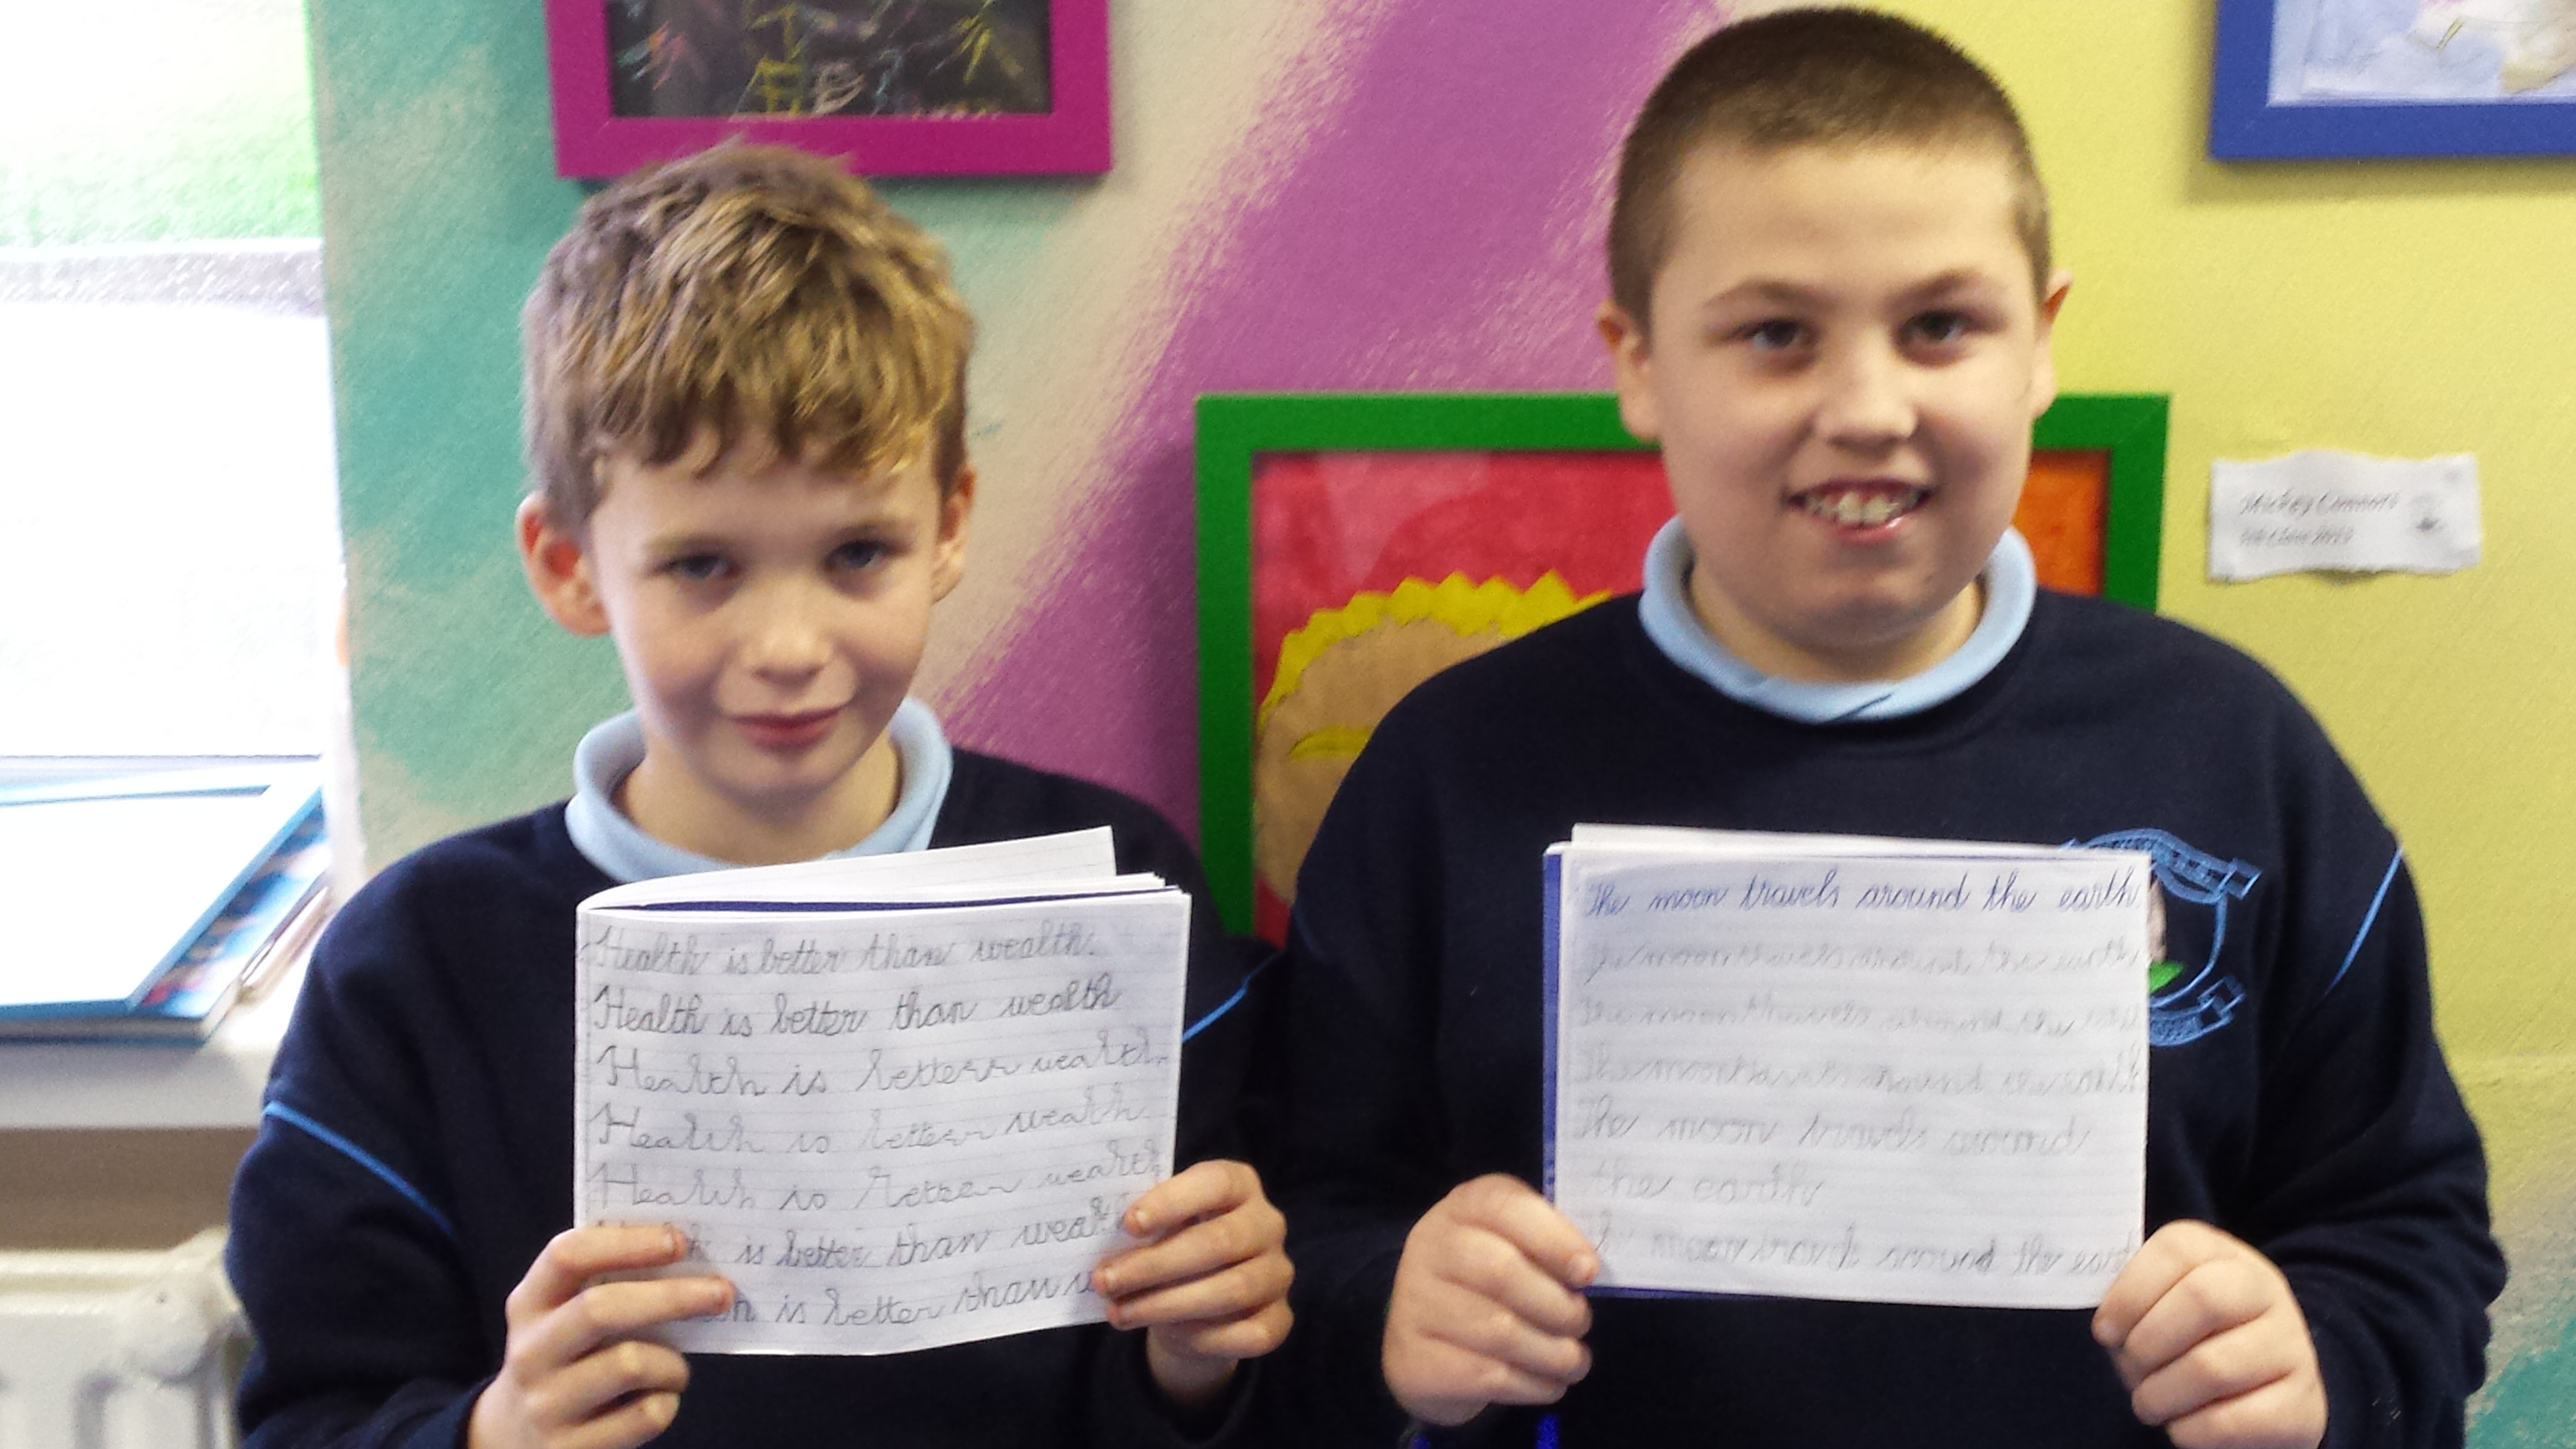 Health is better than wealth.
Health is better than wealth
Health is better wealth.
Health is better wealth.
Health is better wealth
is better than wealth
is better than
The moon travels around the earth
The moon travels around the earth
The moon travels around the
The moon travels around the earth
The moon travels around
the earth
The moon travels around the
Mickey Connors